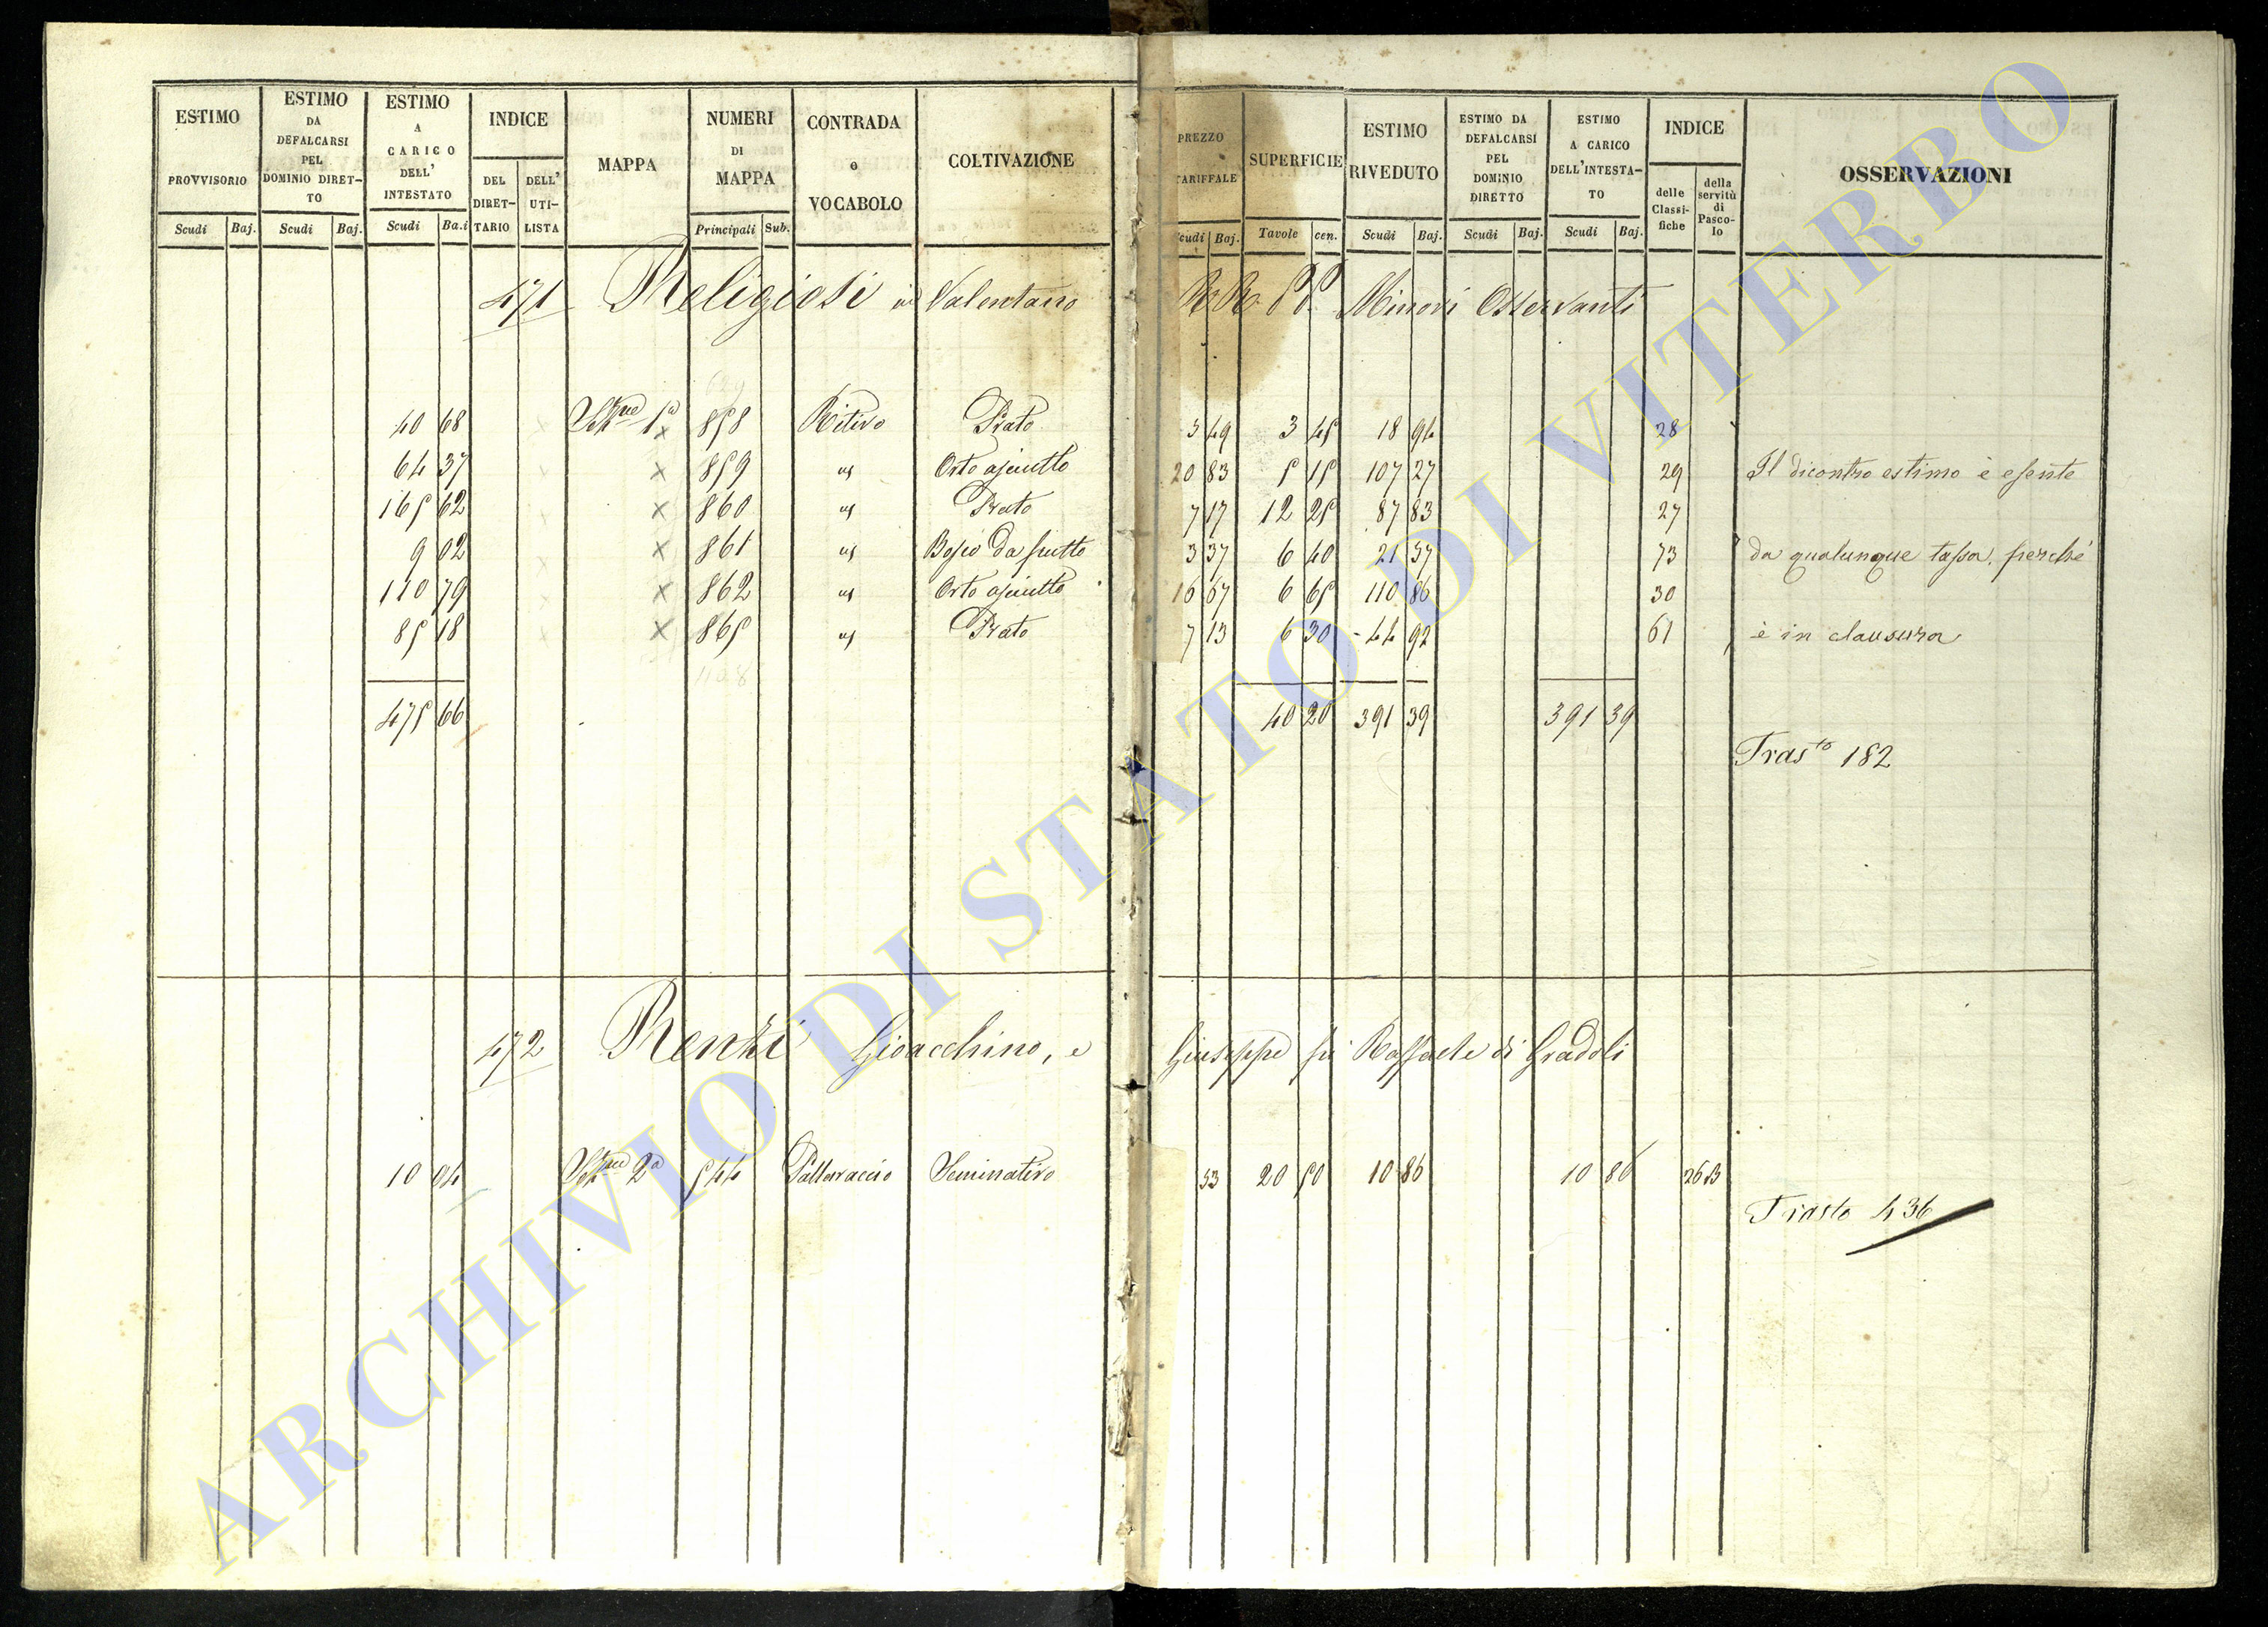 ESTIMO PROVVISORIO Scudi Baj.
ESTIMO DA DEFALCARSI PEL DOMINIO DIRET-TO Scudi Baj.
ESTIMO A CARICO DELL' INTESTATO Scudi Ba.i
INDICE DEL DIRET-TARIO DELL' UTI-LISTA
MAPPA
NUMERI DI MAPPA Principali Sub.
CONTRADA o VOCABOLO
COLTIVAZIONE
PREZZO TARIFFALE Scudi Baj.
SUPERFICIE Tavole cen.
ESTIMO RIVEDUTO Scudi Baj.
ESTIMO DA DEFALCARSI PEL DOMINIO DIRETTO Scudi Baj.
ESTIMO A CARICO DELL'INTESTA-TO Scudi Baj.
INDICE delle Classi-fiche della servitù di Pasco-lo
OSSERVAZIONI
471 Religiosi in Valentano RR. PP. Minori Osservanti
40 68 1ª x 858 Ritiro Prato 5 49 3 45 18 94 28
64 37 x 859 " Orto asciutto 20 83 5 15 107 27 29 Il dicontro estimo è esente
165 62 x 860 " Prato 7 17 12 25 87 83 27
9 02 x 861 " Bosco da frutto 3 37 6 40 21 57 73 da qualunque tassa, perchè
110 79 x 862 " Orto asciutto 16 67 6 65 110 86 30
85 18 x 865 " Prato 7 13 6 30 44 92 61 è in clausura
475 66 40 20 391 39 391 39
Trasto 182
472 Renzi Gioacchino, e Giuseppe fù Raffaele di Gradoli
10 94 2ª 544 Seminativo 53 20 50 10 86 10 86 26 B
Trasto 436
ARCHIVIO DI STATO DI VITERBO